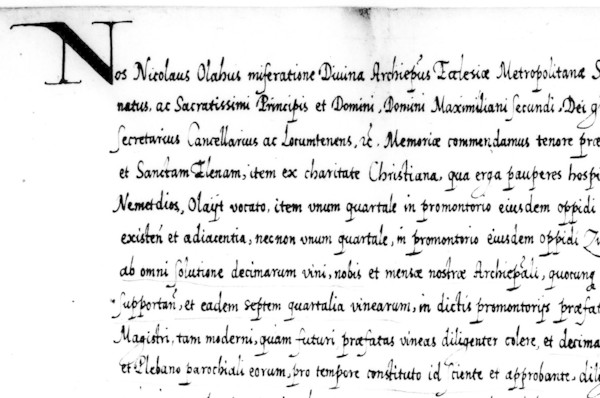 Nos Nicolaus Olahus miseratione Divina Archiep̃us Ecclesiæ Metropolitanæ S
natus, ac Sacratissimi Principis et Domini, Domini Maximiliani secundi, Dei g
secretarius Cancellarius ac Locumtenens, &c. Memoriæ commendamus tenore præ
et Sanctam Elenam, item ex charitate Christiana, qua erga pauperes hospi
Nemetdios, vocato, item vnum quartale in promontorio eiusdem oppidi
existeñ et adiacentia, necnon vnum quartale, in promontorio eiusdem oppidi
ab omni solutione decimarum vini, nobis et mensæ nostræ Archiep̃ali, quocunq
supportañ, et eadem septem quartalia vinearum, in dictis promontorijs præfat
Magistri, tam moderni, quàm futuri præfatas vineas diligenter colere, et decima
et Plebano parochiali eorum, pro tempore constituto id sciente et approbante, dili